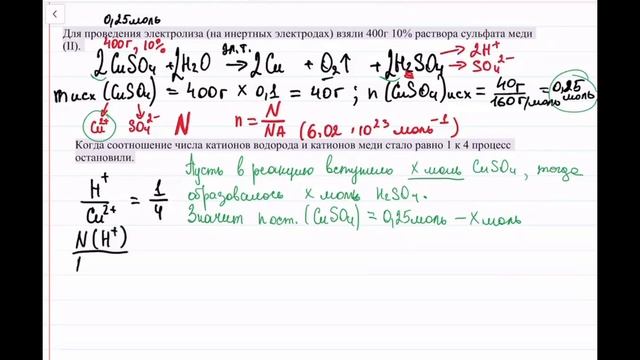 0,25моль
Для проведения электролиза (на инертных электродах) взяли 400г 10% раствора сульфата меди
(II).
400г, 10%
2CuSO4 + 2H2O эл.т. → 2Cu + O2↑ + 2H2SO4 → 2H+
→ SO4 2-
mисх (CuSO4) = 400г × 0,1 = 40г ; n (CuSO4)исх = 40г / 160г/моль = 0,25 моль
Cu2+ SO4 2- N n = N / NA (6,02 · 10^23 моль^-1)
Когда соотношение числа катионов водорода и катионов меди стало равно 1 к 4 процесс
остановили.
Пусть в реакцию вступило x моль CuSO4, тогда
H+ / Cu2+ = 1 / 4
образовалось x моль H2SO4.
Значит nост. (CuSO4) = 0,25моль − x моль
N(H+)